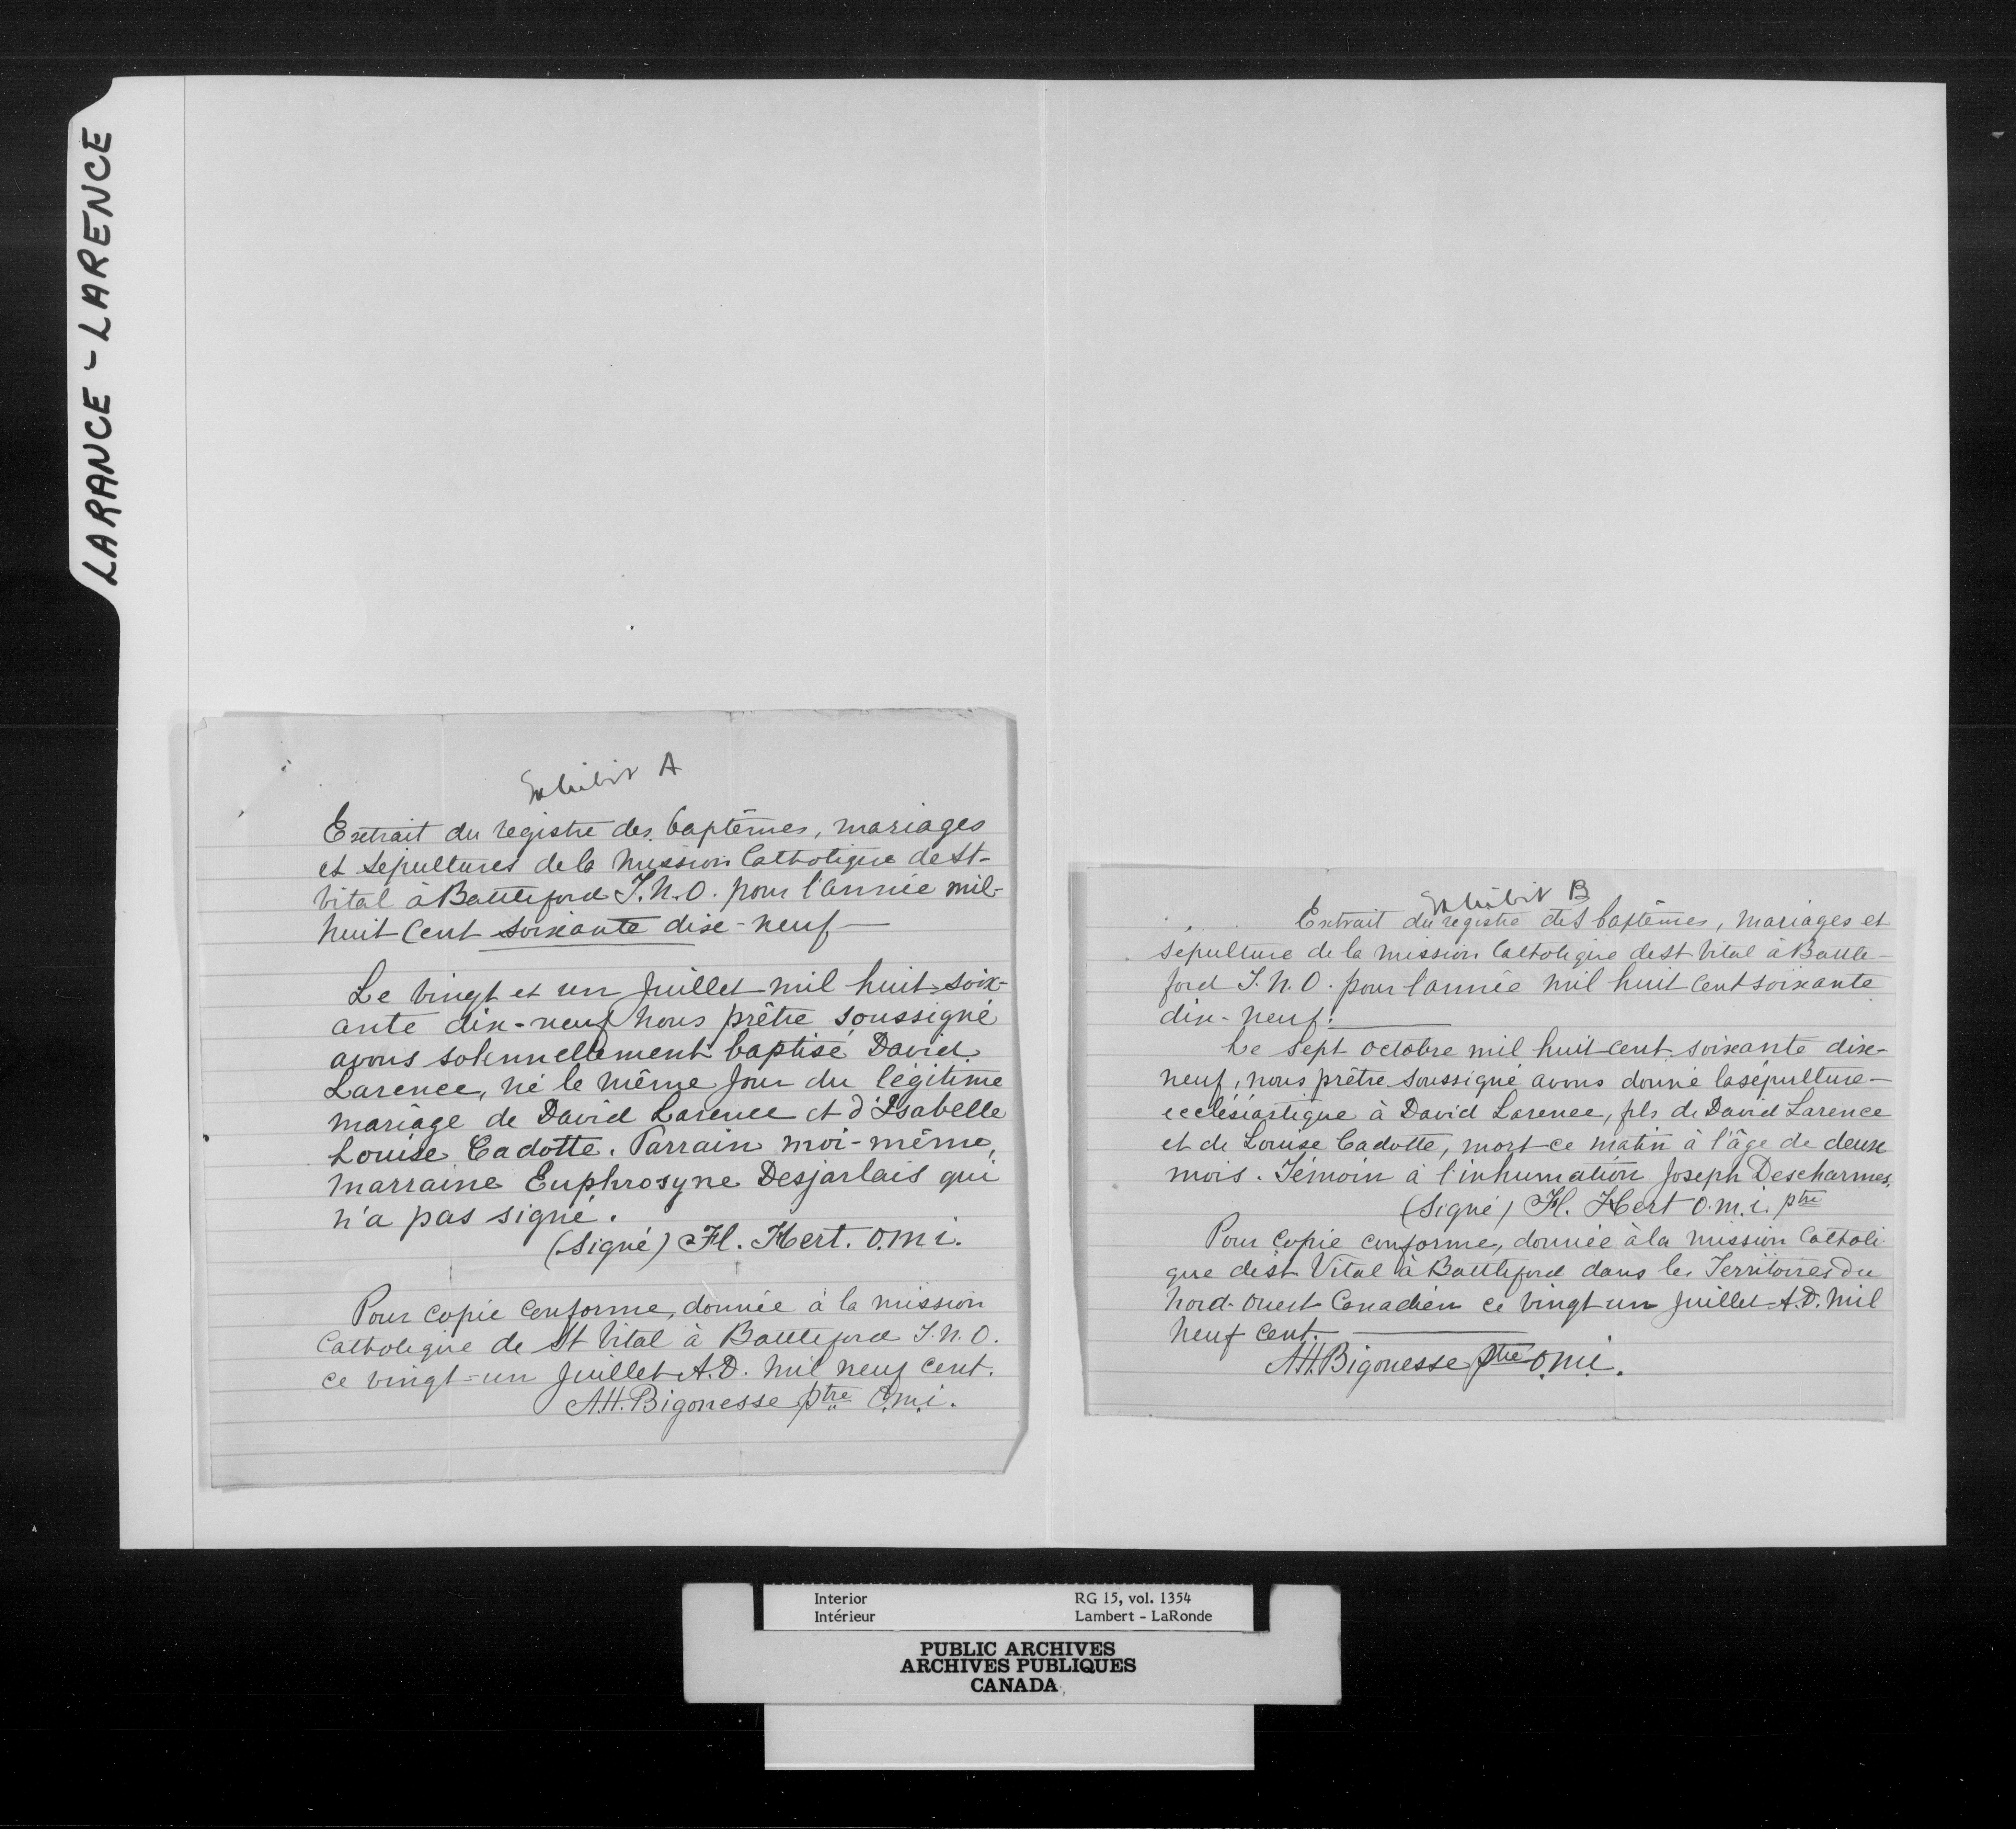 LARANCE - LARENCE
Exhibit A
Extrait du registre des baptêmes, mariages
et sépultures de la mission Catholique de St-
Vital à Battleford T.N.O. pour l'année mil-
huit cent soixante dix-neuf —
Le vingt et un Juillet mil huit soix-
ante dix-neuf nous prêtre soussigné
avons solennellement baptisé David
Larence, né le même jour du légitime
mariage de David Larence et d'Isabelle
Louise Cadotte. Parrain moi-même,
marraine Euphrosyne Desjarlais qui
n'a pas signé.
(Signé) Fl. Hert. O.m.i.
Pour copie conforme, donnée à la mission
Catholique de St Vital à Battleford T.N.O.
ce vingt-un Juillet A.D. mil neuf cent.
A.H. Bigonesse ptre O.m.i.
Exhibit B
Extrait du registre des baptêmes, mariages et
sépulture de la mission Catholique de St Vital à Battle-
ford T.N.O. pour l'année mil huit cent soixante
dix-neuf:
Le sept octobre mil huit cent soixante dix-
neuf, nous prêtre soussigné avons donné la sépulture-
ecclésiastique à David Larence, fils de David Larence
et de Louise Cadotte, mort ce matin à l'âge de deux
mois. Témoin à l'inhumation Joseph Descharmes.
(Signé) Fl. Hert O.m.i. ptre
Pour copie conforme, donnée à la mission Catholi-
que de St Vital à Battleford dans les Territoires du
Nord-Ouest Canadien ce vingt-un Juillet A.D. mil
neuf cent.
A.H. Bigonesse ptre O.m.i.
Interior RG 15, vol. 1354
Intérieur Lambert - LaRonde
PUBLIC ARCHIVES
ARCHIVES PUBLIQUES
CANADA